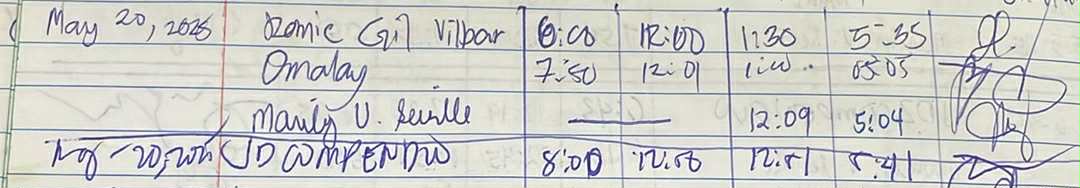 May 20, 2025 Romie Gil Vilbar 8:00 12:00 1:30 5:35
Omalay 7:50 12:01 1:00 05:05
Marily U. Seville — 12:09 5:04
JD COMPENDIO 8:00 12:50 12:51 5:41